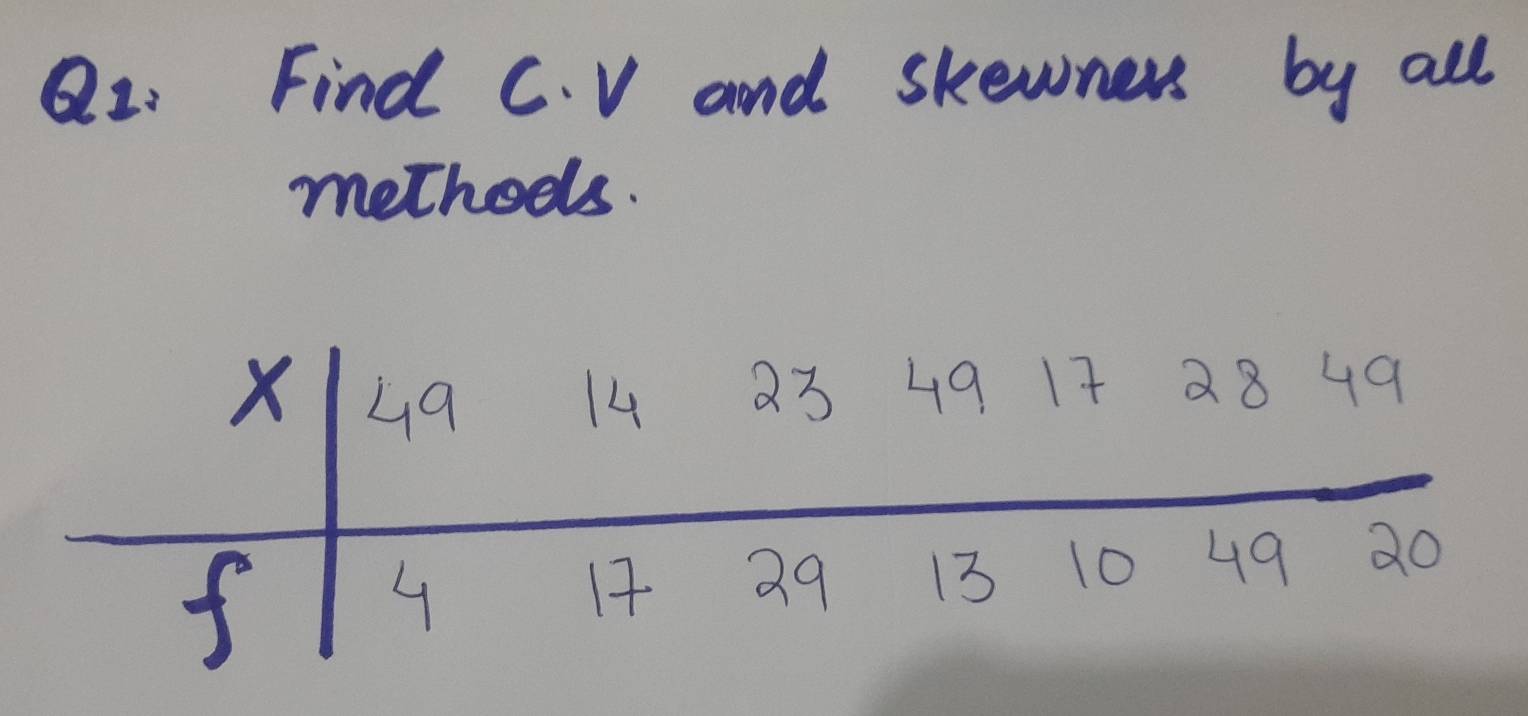 Q1: Find C.V and skewness by all
methods.
X 49 14 23 49 17 28 49
f 4 17 29 13 10 49 20